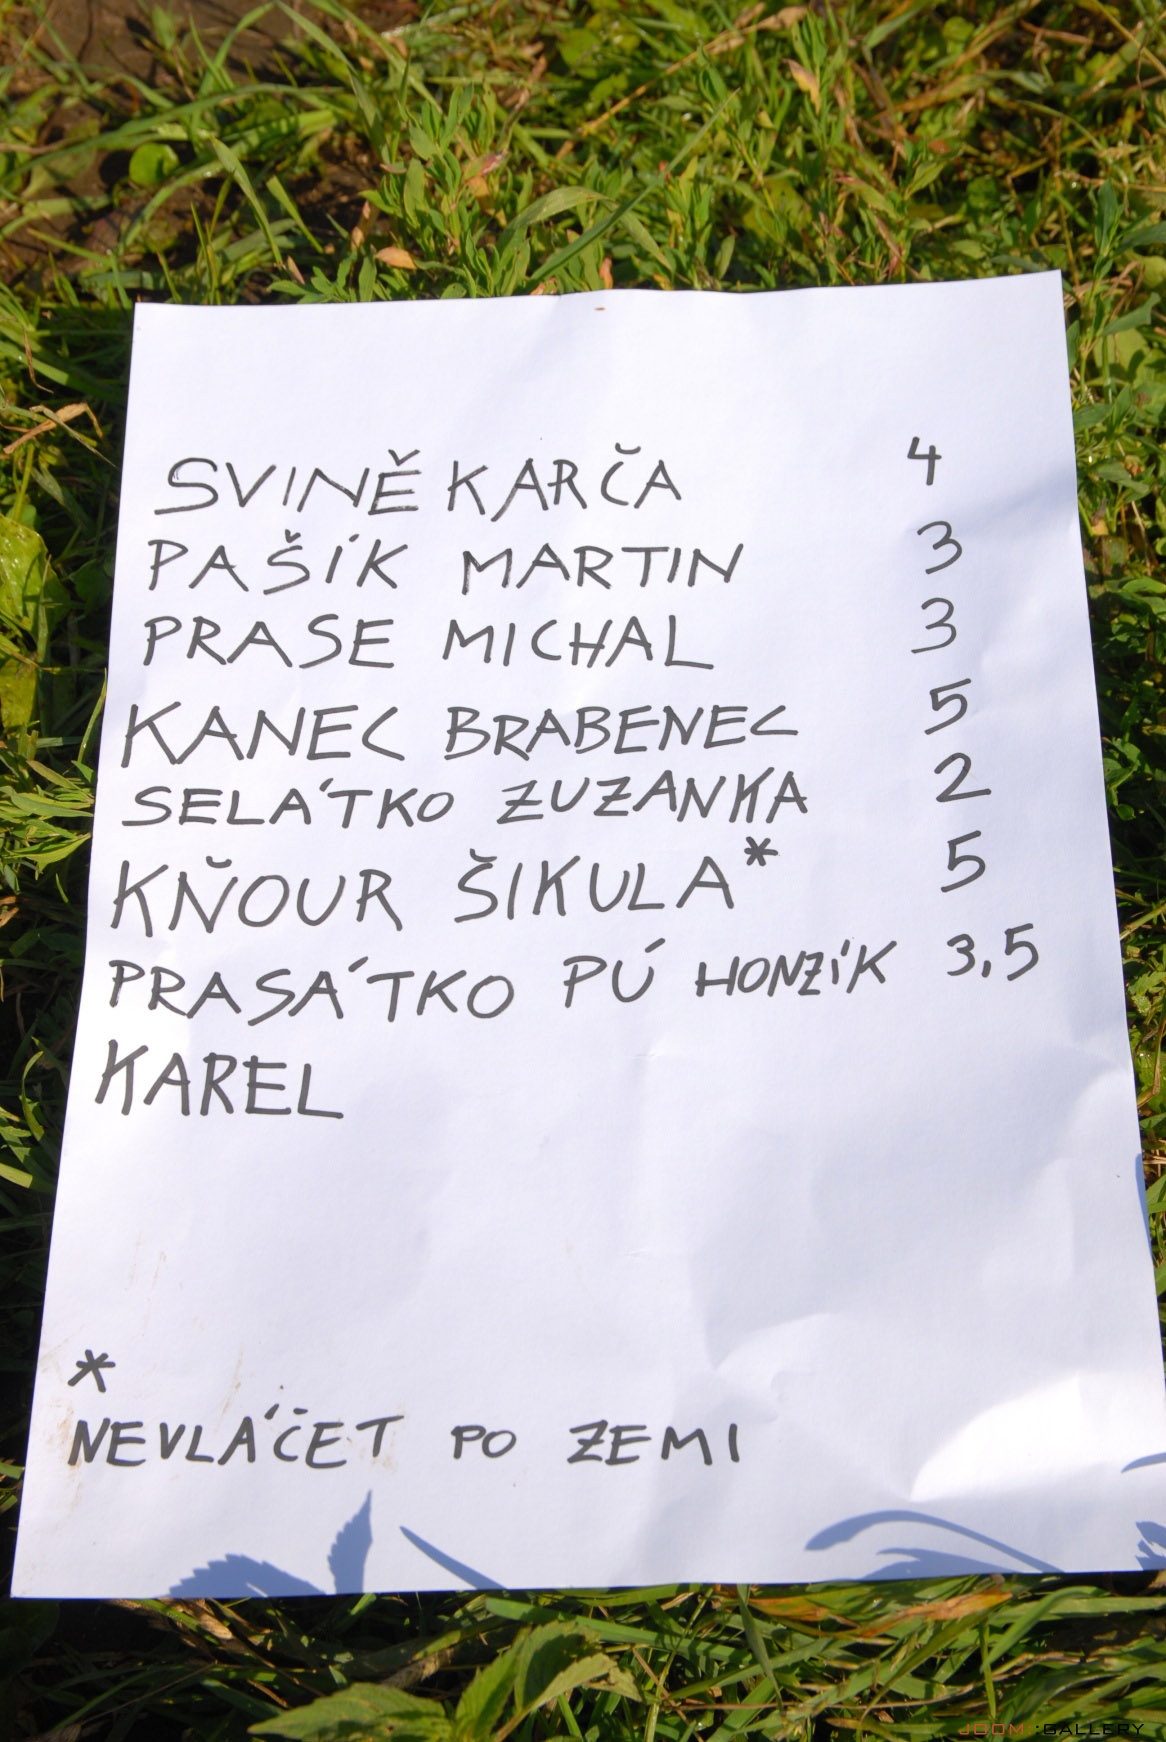 SVINĚ KARČA 4
PAŠÍK MARTIN 3
PRASE MICHAL 3
KANEC BRABENEC 5
SELÁTKO ZUZANKA 2
KŇOUR ŠIKULA* 5
PRASÁTKO PÚ HONZÍK 3,5
KAREL
*
NEVLÁČET PO ZEMI
JOOM::GALLERY